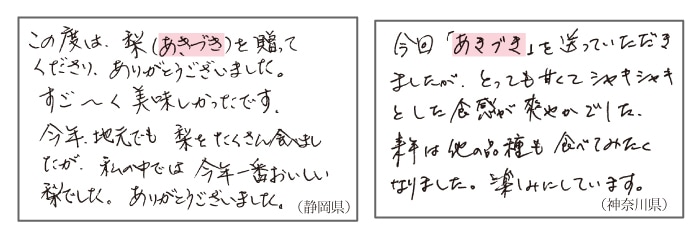 この度は、梨(あきづき)を贈って
くださり、ありがとうございました。
すご〜く美味しかったです。
今年、地元でも梨をたくさん食べまし
たが、私の中では今年一番おいしい
梨でした。ありがとうございました。
(静岡県)
今回「あきづき」を送っていただき
ましたが、とっても甘くてシャキシャキ
とした食感が爽やかでした。
来年は他の品種も食べてみたく
なりました。楽しみにしています。
(神奈川県)